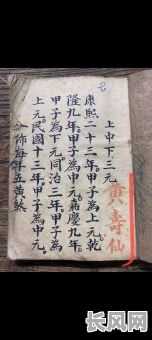 上中下三元
康熙二十三年。甲子為上元。乾
隆九年。甲子為中元。嘉慶九年。
甲子為下元。同治三年。甲子為
上元。民國十三年。甲子為中元。
分佈每年五黄煞
黃壽仙
长风网